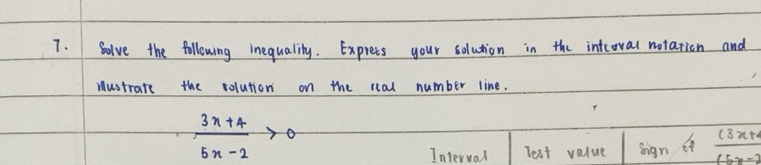 7. Solve the following inequality. Express your solution in the interval notation and
illustrate the solution on the real number line.
3x+4
> 0
5x-2
Interval | Test value | Sign of (3x+4
(5x-2